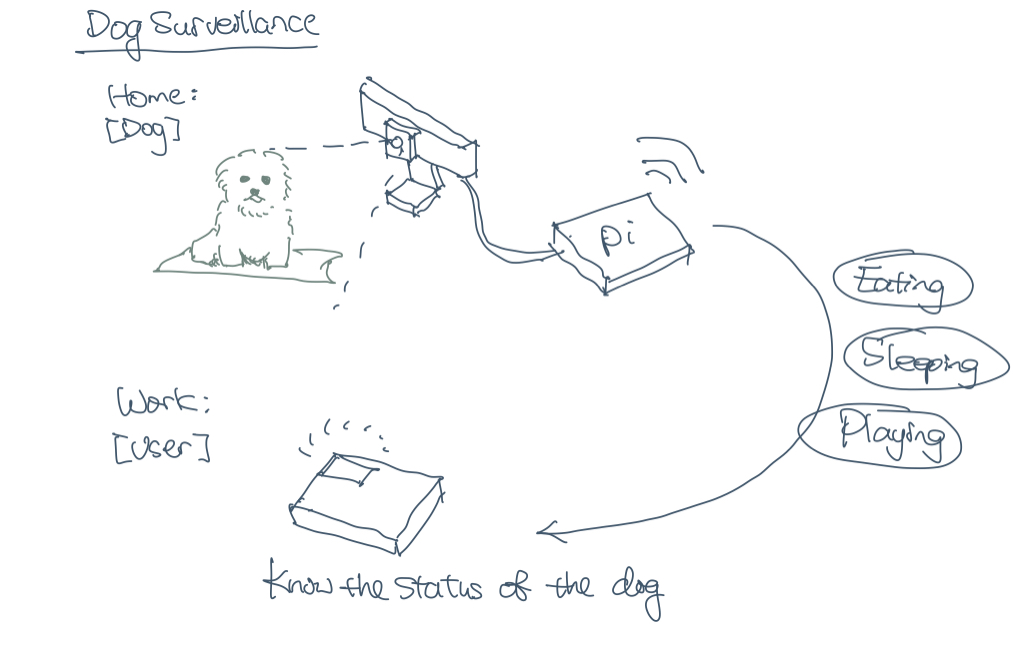 Dog Surveillance
Home:
[Dog]
pi
Eating
Sleeping
Playing
Work:
[User]
Know the status of the dog